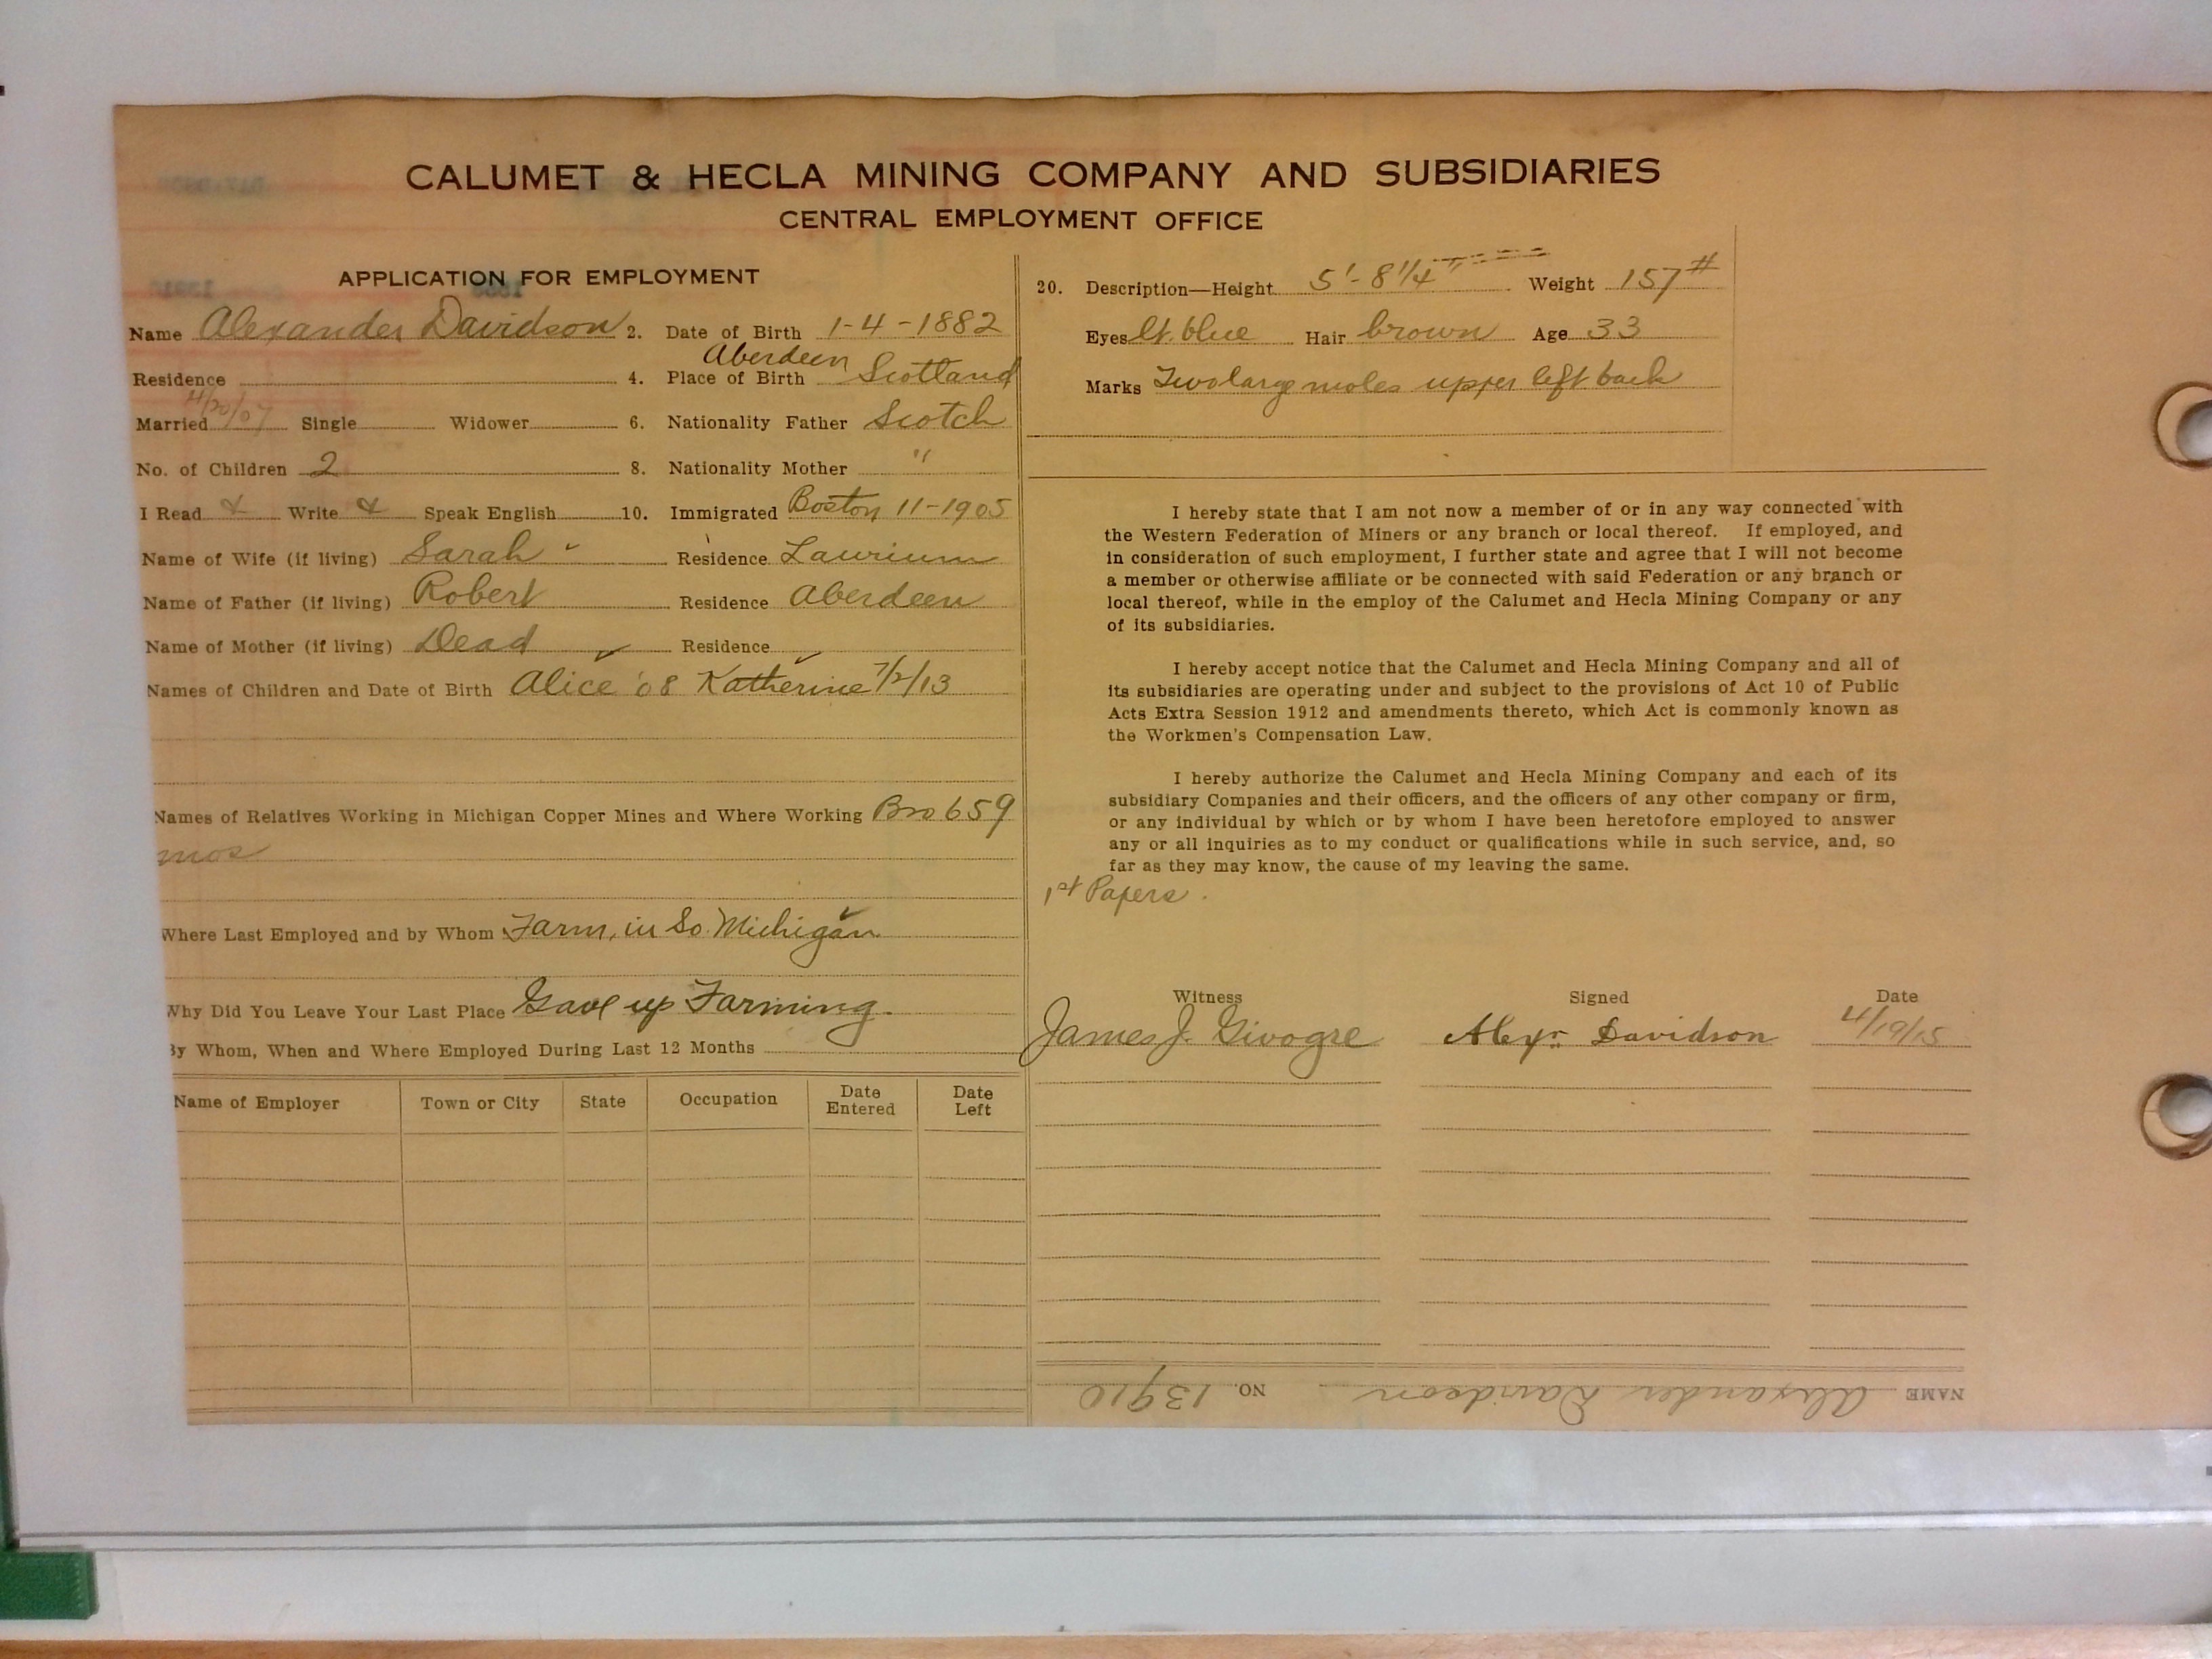 CALUMET & HECLA MINING COMPANY AND SUBSIDIARIES
CENTRAL EMPLOYMENT OFFICE
APPLICATION FOR EMPLOYMENT
Name Alexander Davidson 2. Date of Birth 1-4-1882
Aberdeen
Residence 4. Place of Birth Scotland
4/20/07
Married Single Widower 6. Nationality Father Scotch
No. of Children 2 8. Nationality Mother "
I Read & Write & Speak English 10. Immigrated Boston 11-1905
Name of Wife (if living) Sarah Residence Laurium
Name of Father (if living) Robert Residence Aberdeen
Name of Mother (if living) Dead Residence
Names of Children and Date of Birth Alice '08 Katherine 7/2/13
Names of Relatives Working in Michigan Copper Mines and Where Working Bro 659
mos
Where Last Employed and by Whom Farm, in So. Michigan
Why Did You Leave Your Last Place Gave up Farming.
By Whom, When and Where Employed During Last 12 Months
Name of Employer Town or City State Occupation Date Entered Date Left
20. Description—Height 5'-8 1/4" Weight 157#
Eyes lt. blue Hair brown Age 33
Marks Two large moles upper left back
I hereby state that I am not now a member of or in any way connected with
the Western Federation of Miners or any branch or local thereof. If employed, and
in consideration of such employment, I further state and agree that I will not become
a member or otherwise affiliate or be connected with said Federation or any branch or
local thereof, while in the employ of the Calumet and Hecla Mining Company or any
of its subsidiaries.
I hereby accept notice that the Calumet and Hecla Mining Company and all of
its subsidiaries are operating under and subject to the provisions of Act 10 of Public
Acts Extra Session 1912 and amendments thereto, which Act is commonly known as
the Workmen's Compensation Law.
I hereby authorize the Calumet and Hecla Mining Company and each of its
subsidiary Companies and their officers, and the officers of any other company or firm,
or any individual by which or by whom I have been heretofore employed to answer
any or all inquiries as to my conduct or qualifications while in such service, and, so
far as they may know, the cause of my leaving the same.
1st Papers.
Witness Signed Date
James J. Givogre Alexr. Davidson 4/19/15
NAME Alexander Davidson NO. 13910